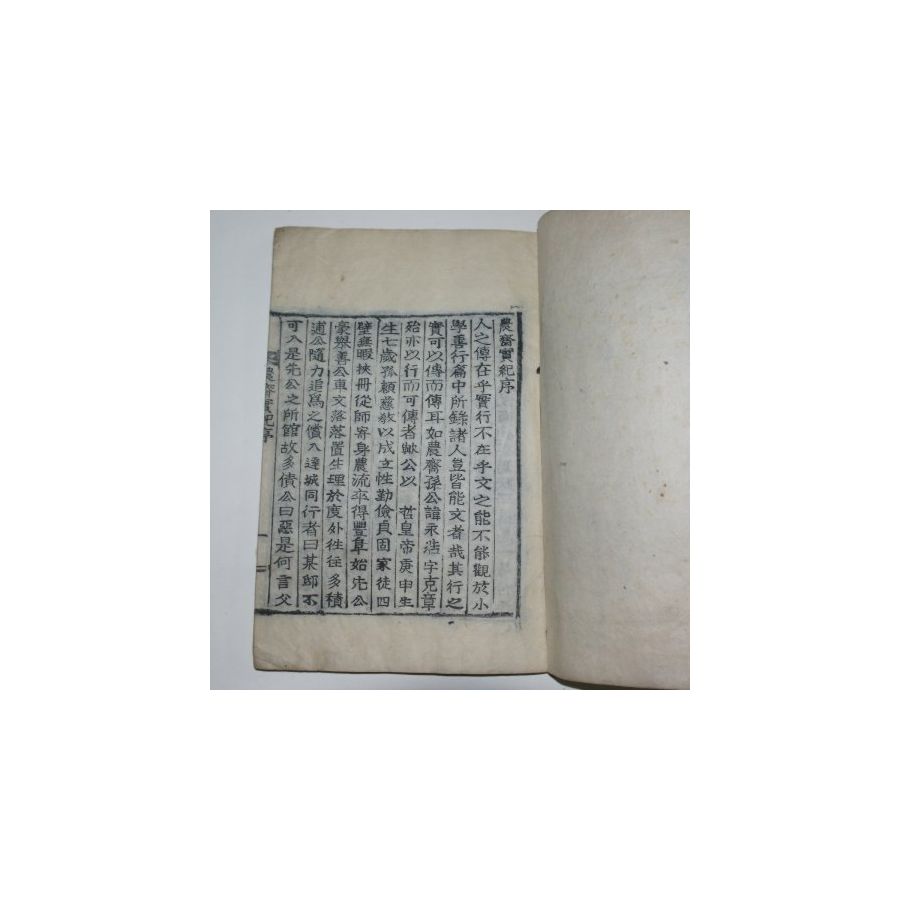 農齋實紀序
人之傳在乎實行不在乎文之能不能觀於小
學善行篇中所錄諸人豈皆能文者哉其行之
實可以傳而傳耳如農齋孫公諱永浩字克章
殆亦以行而可傳者歟公以 哲皇帝庚申生
生七歲孤賴慈敎以成立性勤儉貞固家徒四
壁無暇挾冊從師寄身農流卒得豐阜始先公
豪擧善公車文落落置生理於度外往往多積
逋公隨力追爲之償入達城同行者曰某邸不
可入是先公之所館故多債公曰惡是何言父
農齋實紀序
一